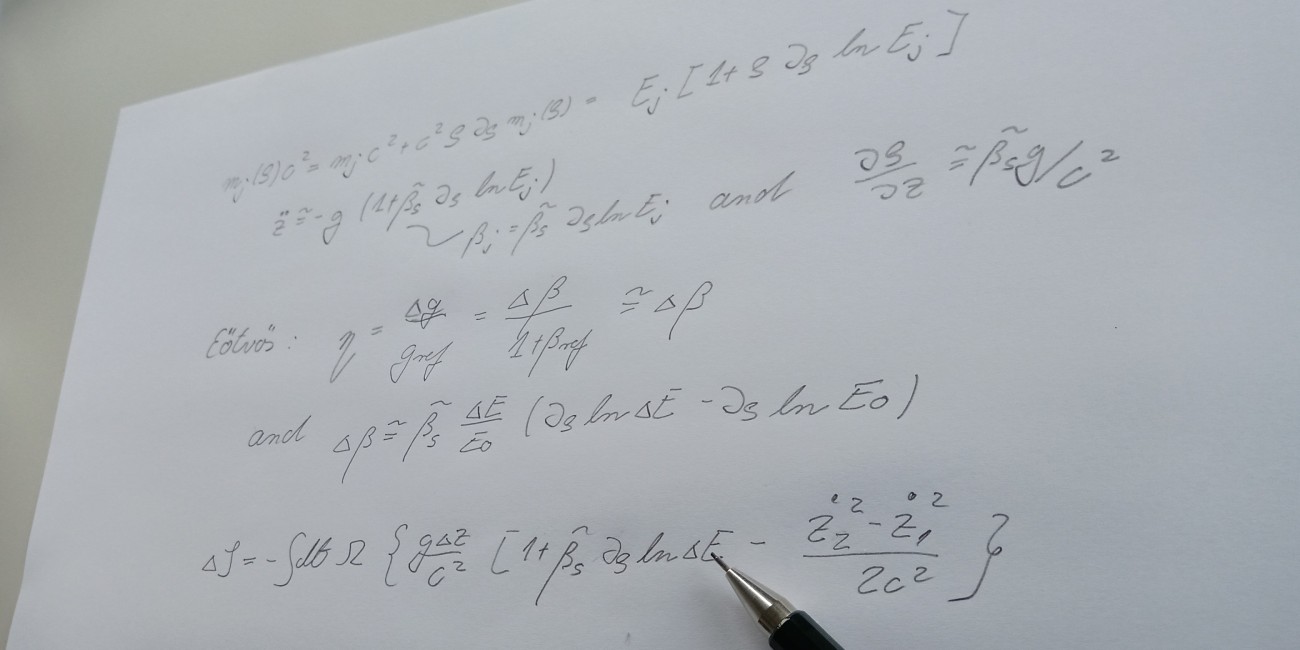 mj(ϱ)c² = mj c² + c² ϱ ∂ϱ mj(ϱ) = Ej [1 + ϱ ∂ϱ ln Ej]
z̈ ≅ -g (1 + β̃s ∂ϱ ln Ej)
βj = β̃s ∂ϱ ln Ej and ∂ϱ/∂z ≅ β̃s g/c²
Eötvös: η = Δg/gref = Δβ/1+βref ≅ Δβ
and Δβ ≅ β̃s ΔE/E0 (∂ϱ ln ΔE - ∂ϱ ln E0)
Δφ = -∫dt Ω { gΔz/c² [1 + β̃s ∂ϱ ln ΔE - ż2² - ż1²/2c² ] }